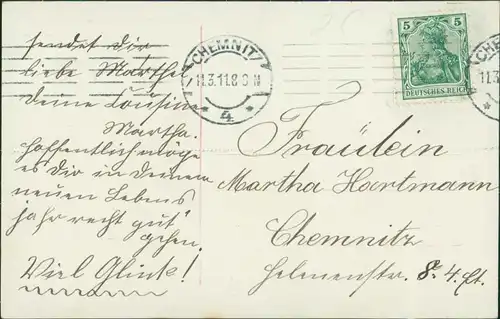 sendet dir
liebe Martha
deine Cousine
Martha.
Hoffentlich möge
es dir in deinem
neuen Lebens
jahr recht gut
gehen.
Viel Glück!
CHEMNITZ
11.3.11.8-9N
* 4 *
5 5
DEUTSCHES REICH
CHE
11.3
Fräulein
Martha Hartmann
Chemnitz
Helmenstr. 8. 4. Et.